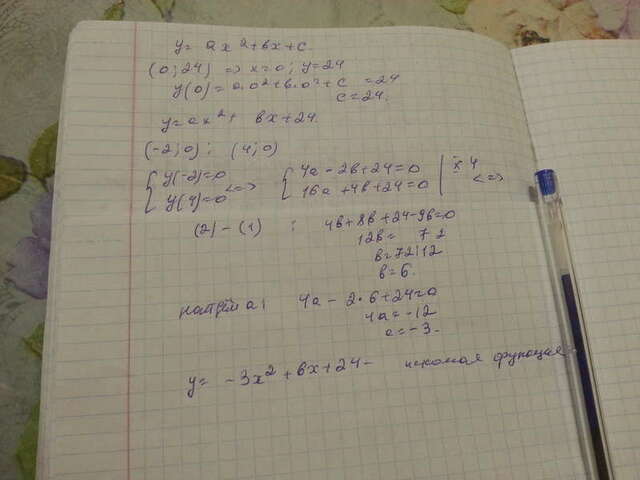 y = ax²+bx+c
(0;24) => x=0; y=24
y(0)=a·0²+b·0+c =24
c=24.
y=ax²+ bx+24.
(-2;0); (4;0)
{ y(-2)=0 <=> { 4a-2b+24=0 | x 4
y(4)=0 16a+4b+24=0 <=>
(2)-(1) : 4b+8b+24-96=0
12b= 72
b=72|12
b=6.
найдём a: 4a-2·6+24=0
4a=-12
a=-3.
y= -3x²+6x+24- искомая функция